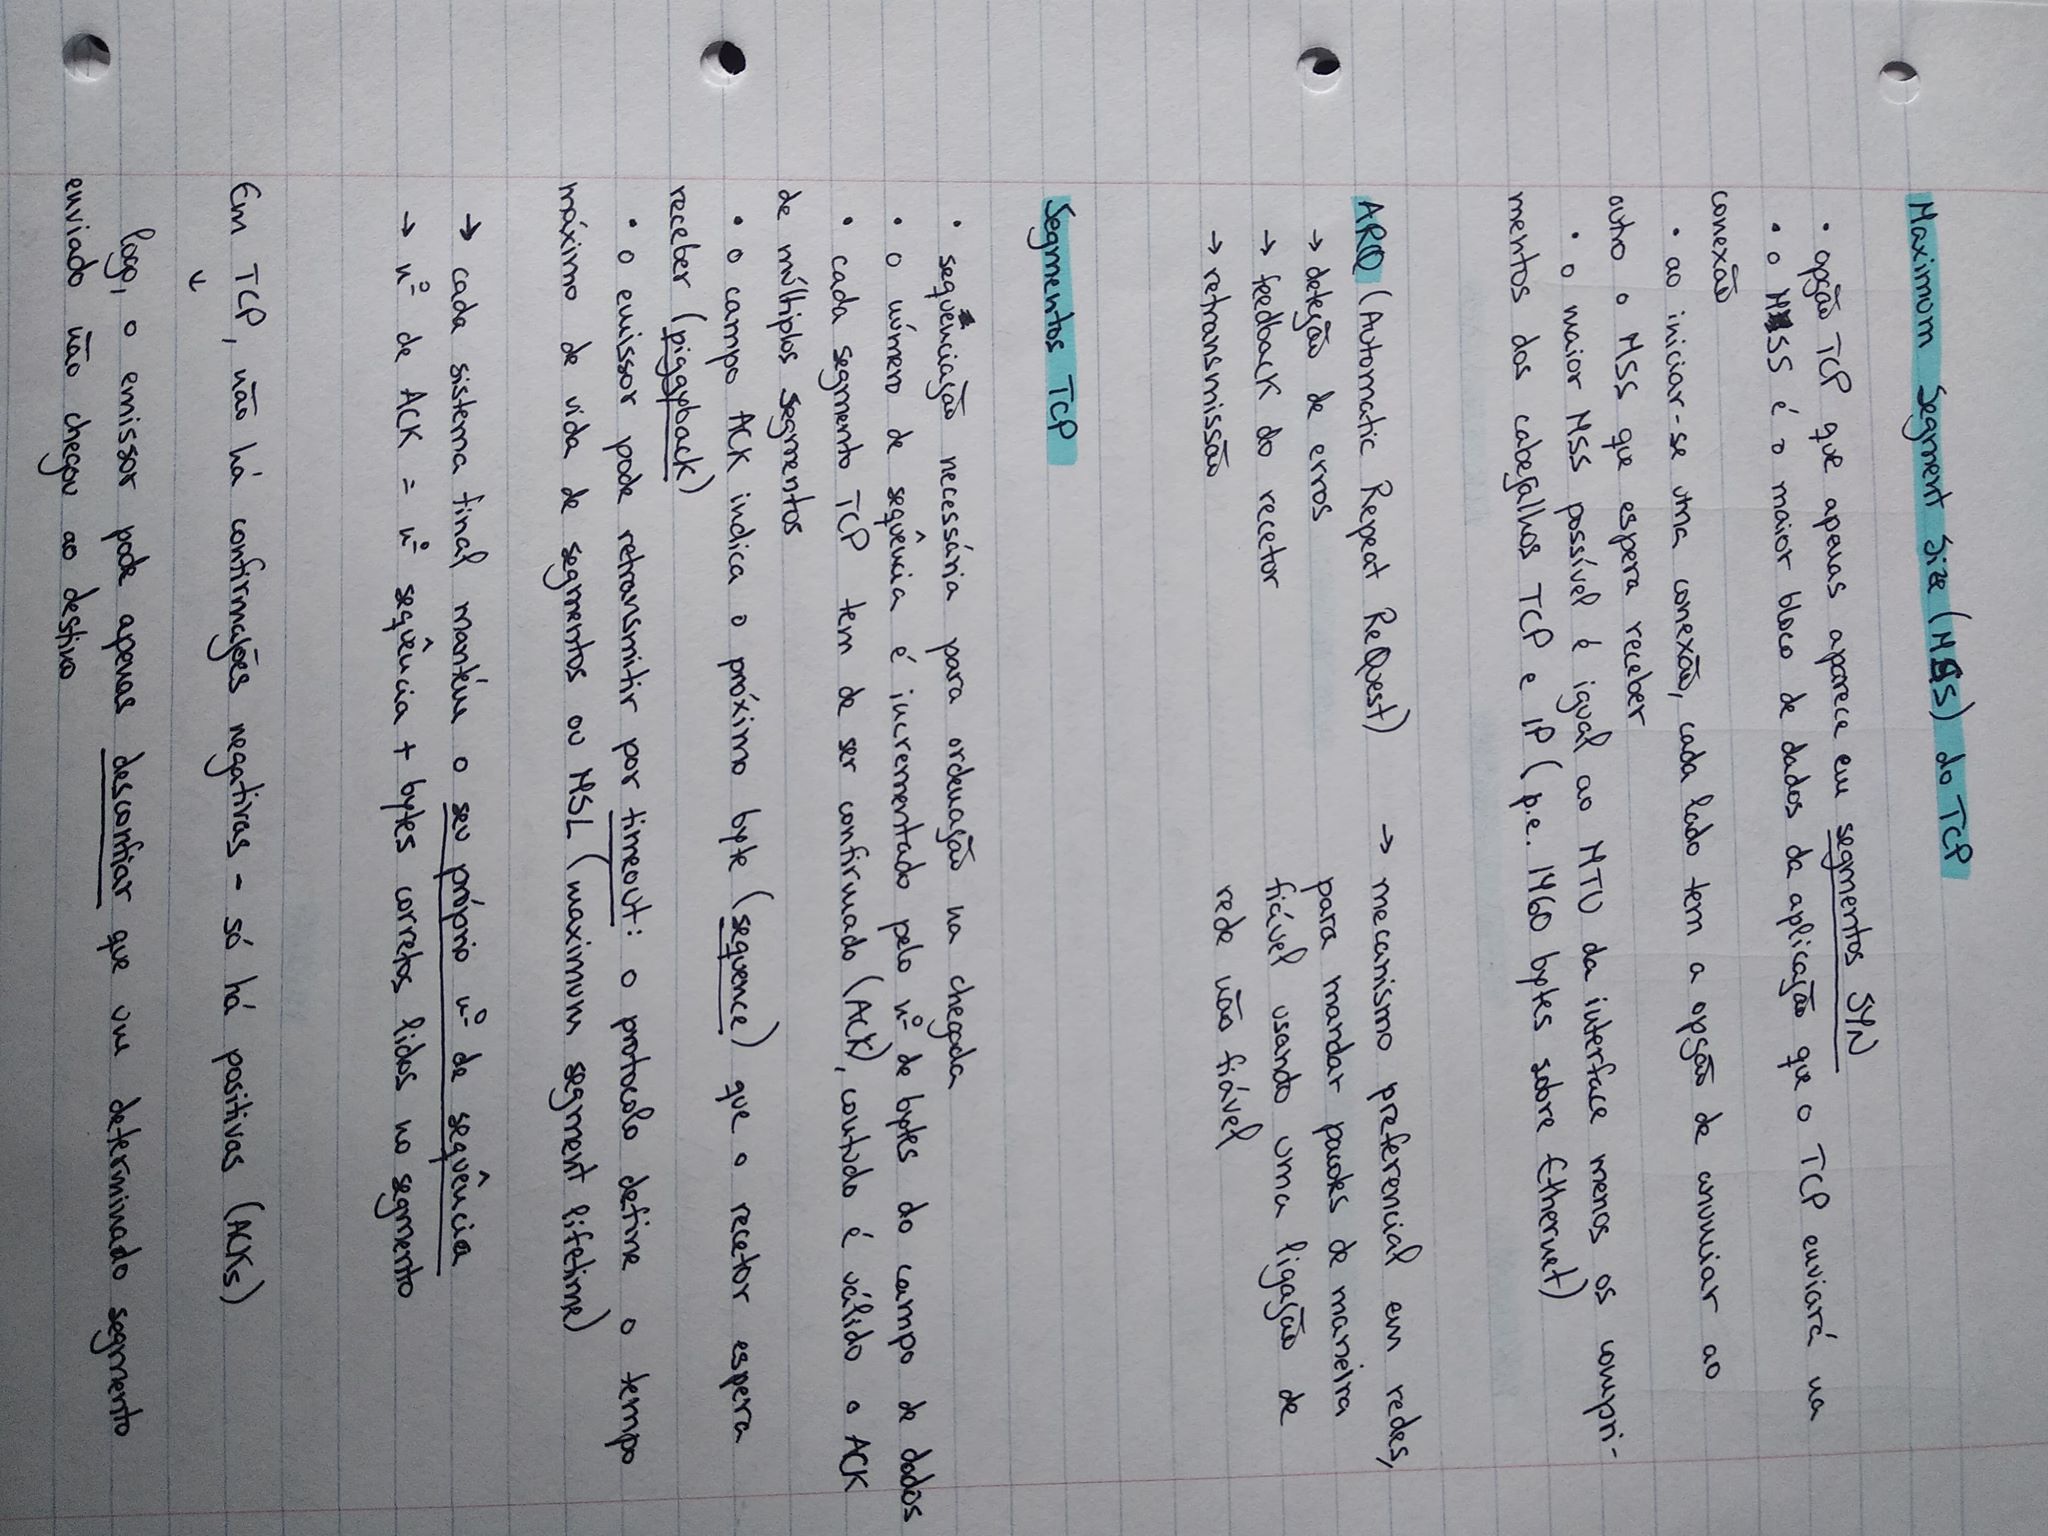 Maximum Segment Size (MSS) do TCP
• opção TCP que apenas aparece em segmentos SYN
• o MSS é o maior bloco de dados da aplicação que o TCP enviará na
conexão
• ao iniciar-se uma conexão, cada lado tem a opção de anunciar ao
outro o MSS que espera receber
• o maior MSS possível é igual ao MTU da interface menos os compri-
mentos dos cabeçalhos TCP e IP (p.e. 1460 bytes sobre Ethernet)
ARQ (Automatic Repeat ReQuest)
→ deteção de erros
→ feedback do recetor
→ retransmissão
→ mecanismo preferencial em redes,
para mandar pacotes de maneira
fiável usando uma ligação de
rede não fiável
Segmentos TCP
• sequenciação necessária para ordenação na chegada
• o número de sequência é incrementado pelo nº de bytes do campo de dados
• cada segmento TCP tem de ser confirmado (ACK), contudo é válido o ACK
de múltiplos segmentos
• o campo ACK indica o próximo byte (sequence) que o recetor espera
receber (piggyback)
• o emissor pode retransmitir por timeout: o protocolo define o tempo
máximo de vida de segmentos ou MSL (maximum segment lifetime)
→ cada sistema final mantém o seu próprio nº de sequência
→ nº de ACK = nº sequência + bytes corretos lidos no segmento
Em TCP, não há confirmações negativas - só há positivas (ACKs)
↓
logo, o emissor pode apenas desconfiar que um determinado segmento
enviado não chegou ao destino